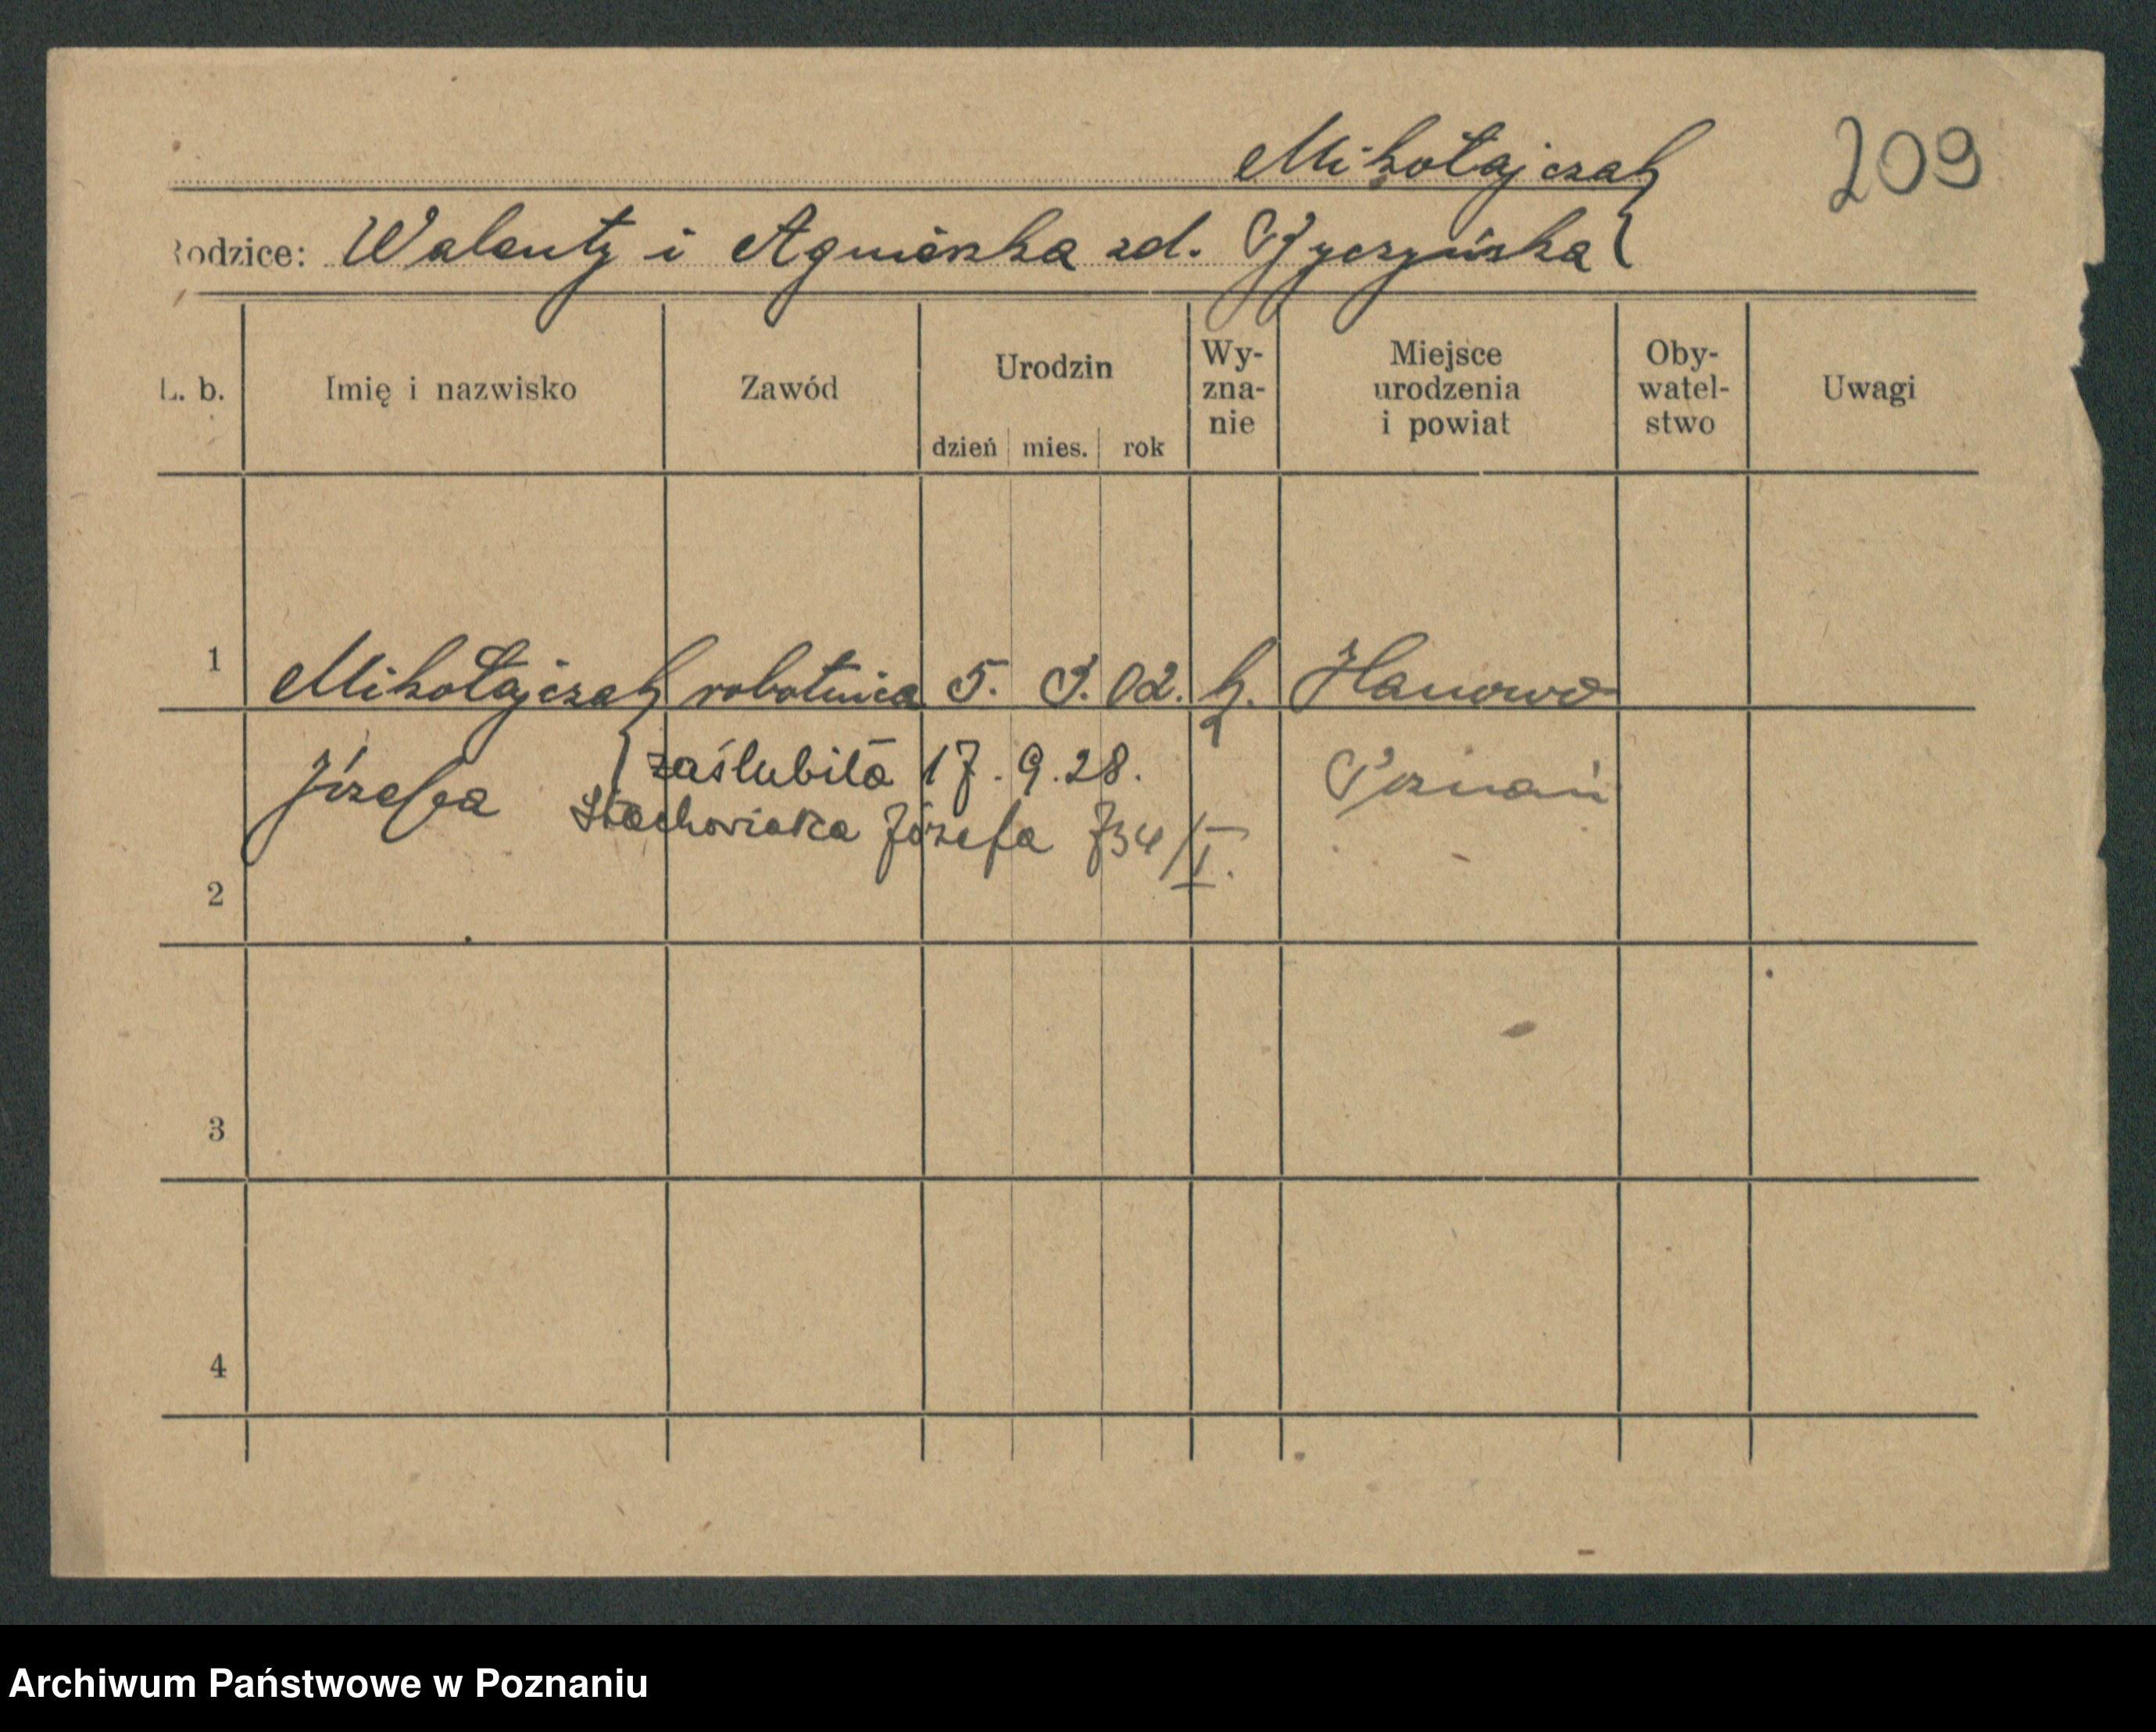 Mikołajczak
209
Rodzice: Walenty i Agnieszka zd.
L. b.
Imię i nazwisko
Zawód
Urodzin
dzień mies. rok
Wy-
zna-
nie
Miejsce
urodzenia
i powiat
Oby-
watel-
stwo
Uwagi
1 Mikołajczak robotnica 5. 3. 02. k.
Józefa
zaślubiła 17. 9. 28.
Stachowiaka Józefa 734/I.
Poznań
2
3
4
Archiwum Państwowe w Poznaniu